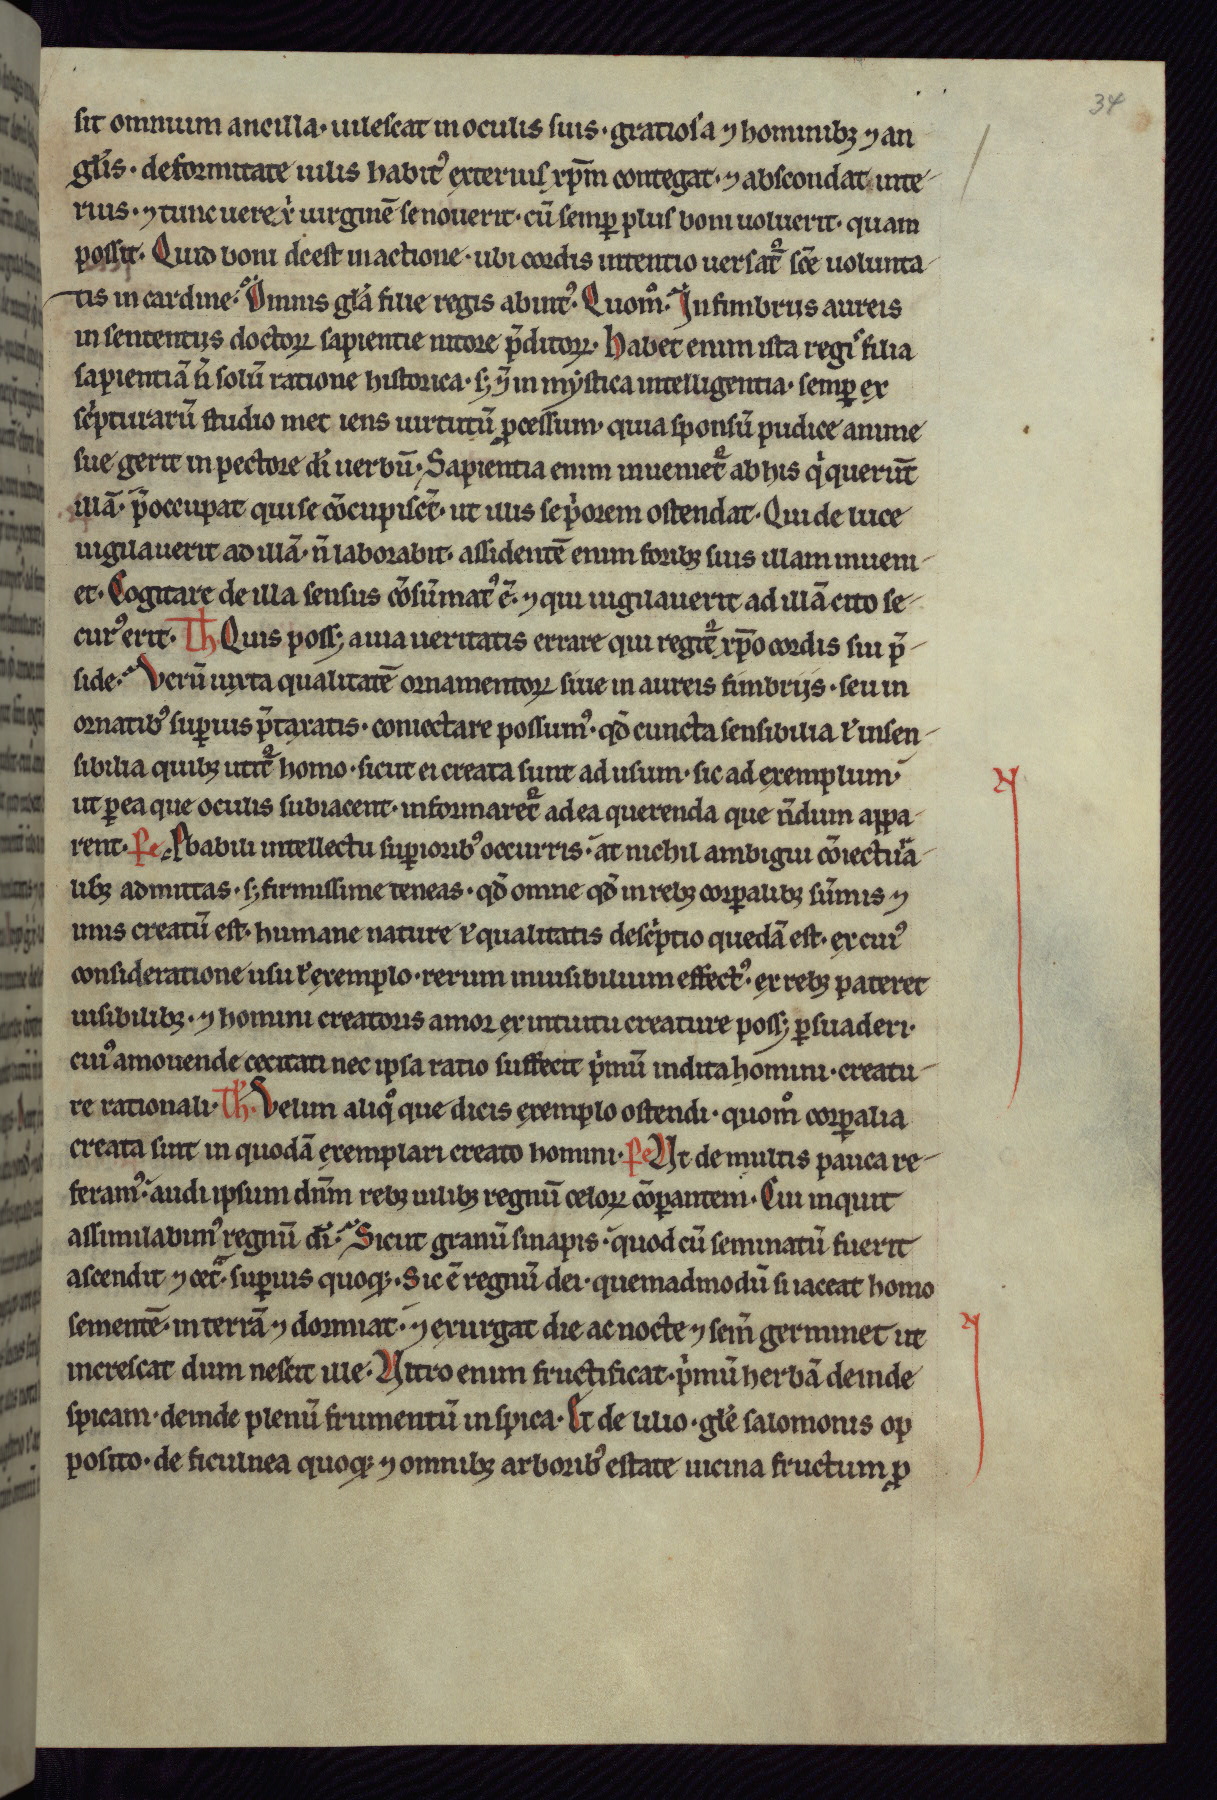 34
sit omnium ancilla· uilescat in oculis suis· gratiosa ⁊ hominibꝫ ⁊ an
gl̃is· deformitate uilis habitꝰ exterius xp̄m contegat· ⁊ abscondat inte-
rius· ⁊ tunc uere xp̄i uirginē se nouerit· cū semꝑ plus boni uoluerit· quam
possit· Quid boni deest in actione· ubi cordis intentio uersat᷑ sc̄e uolunta-
tis in cardine. Omnis gl̃a filie regis ab intꝰ· Quom̊. In fimbrijs aureis
in sententijs doctoꝝ sapientie nitore p̄ditoꝝ· Habet enim ista regis filia
sapientiā n̄ solū ratione historica· sꝫ ⁊ in mẏstica intelligentia· semꝑ ex
sc͛pturarū studio met iens uirtutū ꝓcessum· quia sponsū pudice anime
sue gerit in pectore dī uerbū· Sapientia enim inueniet᷑ ab his qͥ querūt
illā· p̄occupat qui se cōcupisct̄· ut illis se pͥorem ostendat· Qui de luce
uigilauerit ad illā· n̄ laborabit· assidentē enim foribꝫ suis illam inueni-
et· Cogitare de illa sensus cōsūmatꝰ ē· ⁊ qui uigilauerit ad illā cito se-
curꝰ erit· Th Quis possꝫ a uia ueritatis errare qui regit᷑ xp̄o cordis sui p̄-
side. Verū iuxta qualitatē ornamentoꝝ siue in aureis fimbrijs· seu in
ornatibꝰ suꝑius p̄taxatis· coniectare possumꝰ· qd̄ cuncta sensibilia ł insen-
sibilia quibꝫ utit᷑ homo· sicut ei creata sunt ad usum· sic ad exemplum·
ut ꝑ ea que oculis subiacent· informaret᷑ ad ea querenda que n̄dum appa-
rent· Pe. Ꝓbabili intellectu suꝑioribꝰ occurris· at nichil ambigui cōiectura-
libꝫ admittas· sꝫ firmissime teneas· qd̄ omne qd̄ in rebꝫ corꝑalibꝫ sūmis ⁊
imis creatū est· humane nature ł qualitatis desc͛ptio quedā est· ex cuiꝰ
consideratione usu ł exemplo· rerum inuisibilium effectꝰ· ex rebꝫ pateret
uisibilibꝫ· ⁊ homini creatoris amor ex intuitu creature possꝫ ꝑsuaderi·
cuiꝰ amouende cecitati nec ipsa ratio suffecit pͥmū indita homini· creatu-
re rationali· Th. Velim aliqͦ que dicis exemplo ostendi· quom̊ corꝑalia
creata sunt in quodā exemplari creato homini· Pe Vt de multis pauca re-
feramꝰ· audi ipsum dn̄m rebꝫ uilibꝫ regnū celoꝝ cōꝑantem· Cui inquit
assimilabimꝰ regnū dī. Sicut granū sinapis· quod cū seminatū fuerit
ascendit ⁊ cet̄· suꝑius quoqꝫ· Sic ē regnū dei· quemadmodū si iaceat homo
sementē· in terrā ⁊ dormiat· ⁊ exurgat die ac nocte ⁊ sem̄ germinet ut
increscat dum nescit ille· Vltro enim fructificat· pͥmū herbā deinde
spicam· deinde plenū frumentū in spica· At de lilio· gl̃e salomonis op
posito· de ficulnea quoqꝫ ⁊ omnibꝫ arboribꝰ estate uicina fructum ꝓ